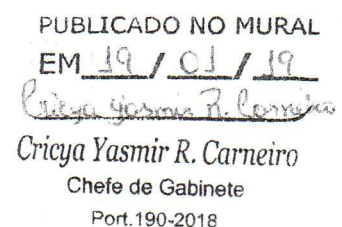 PUBLICADO NO MURAL
EM 19 / 01 / 19
Cricya Yasmir R. Carneiro
Cricya Yasmir R. Carneiro
Chefe de Gabinete
Port.190-2018